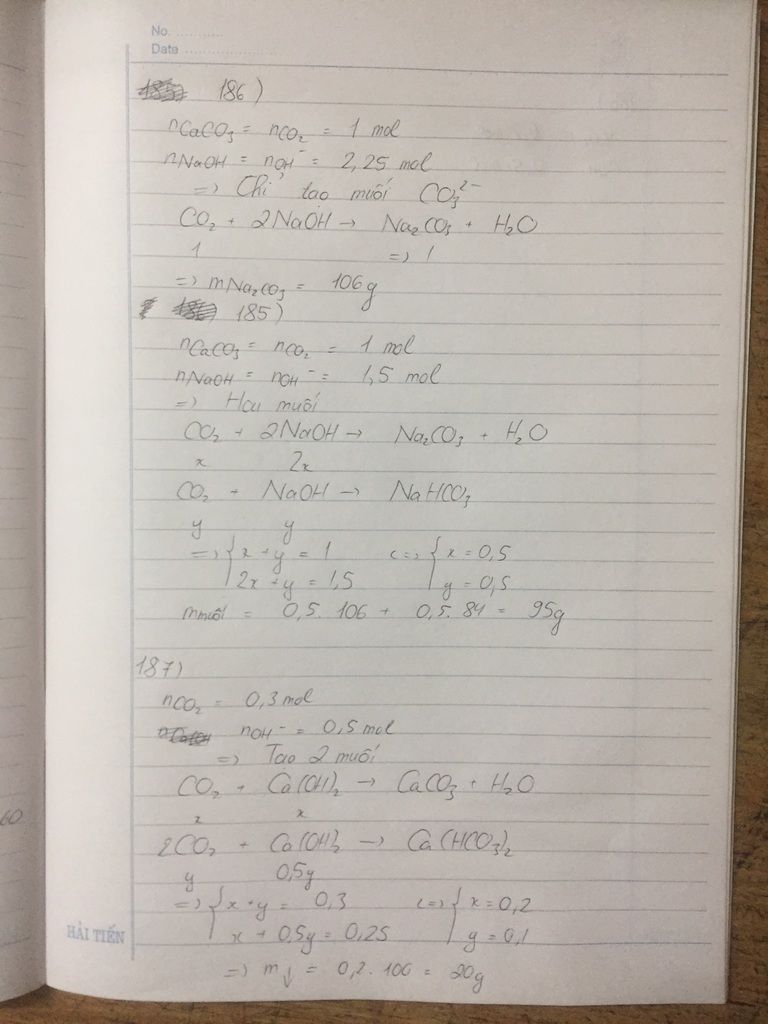 No. ............
Date ........................
186)
nCaCO₃ = nCO₂ = 1 mol
nNaOH = nOH⁻ = 2,25 mol
=> Chỉ tạo muối CO₃²⁻
CO₂ + 2NaOH → Na₂CO₃ + H₂O
1 => 1
=> mNa₂CO₃ = 106g
185)
nCaCO₃ = nCO₂ = 1 mol
nNaOH = nOH⁻ = 1,5 mol
=> Hai muối
CO₂ + 2NaOH → Na₂CO₃ + H₂O
x 2x
CO₂ + NaOH → NaHCO₃
y y
=> { x + y = 1 <=> { x = 0,5
2x + y = 1,5 y = 0,5
mmuối = 0,5. 106 + 0,5. 84 = 95g
187)
nCO₂ = 0,3 mol
nOH⁻ = 0,5 mol
=> Tạo 2 muối
CO₂ + Ca(OH)₂ → CaCO₃ + H₂O
x x
2CO₂ + Ca(OH)₂ → Ca(HCO₃)₂
y 0,5y
=> { x + y = 0,3 <=> { x = 0,2
x + 0,5y = 0,25 y = 0,1
=> m↓ = 0,2. 100 = 20g
HẢI TIẾN
60